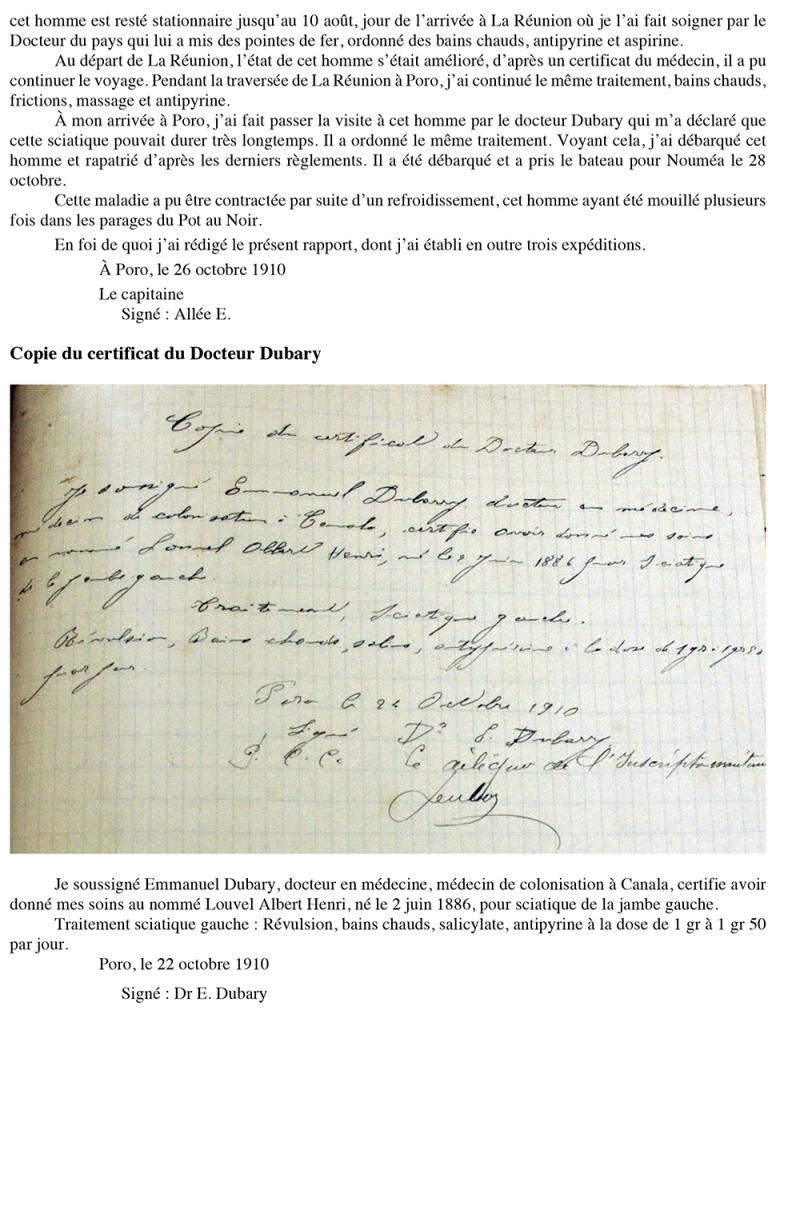 cet homme est resté stationnaire jusqu’au 10 août, jour de l’arrivée à La Réunion où je l’ai fait soigner par le
Docteur du pays qui lui a mis des pointes de fer, ordonné des bains chauds, antipyrine et aspirine.
Au départ de La Réunion, l’état de cet homme s’était amélioré, d’après un certificat du médecin, il a pu
continuer le voyage. Pendant la traversée de La Réunion à Poro, j’ai continué le même traitement, bains chauds,
frictions, massage et antipyrine.
À mon arrivée à Poro, j’ai fait passer la visite à cet homme par le docteur Dubary qui m’a déclaré que
cette sciatique pouvait durer très longtemps. Il a ordonné le même traitement. Voyant cela, j’ai débarqué cet
homme et rapatrié d’après les derniers règlements. Il a été débarqué et a pris le bateau pour Nouméa le 28
octobre.
Cette maladie a pu être contractée par suite d’un refroidissement, cet homme ayant été mouillé plusieurs
fois dans les parages du Pot au Noir.
En foi de quoi j’ai rédigé le présent rapport, dont j’ai établi en outre trois expéditions.
À Poro, le 26 octobre 1910
Le capitaine
Signé : Allée E.
Copie du certificat du Docteur Dubary
Copie du certificat du Docteur Dubary.
Je sousigné Emmanuel Dubary, docteur en médecine,
médecin de colonisation à Canala, certifie avoir donné mes soins
au nommé Louvel Albert Henri, né le 2 Juin 1886 pour Sciatique
de la jambe gauche.
Traitement, Sciatique gauche.
Révulsion, Bains chauds, antipyrine à la dose de 1gr à 1gr50
par jour.
Poro le 22 Octobre 1910
Signé Dr E. Dubary
P. C. C. Le délégué de l'Inscription maritime
Je soussigné Emmanuel Dubary, docteur en médecine, médecin de colonisation à Canala, certifie avoir
donné mes soins au nommé Louvel Albert Henri, né le 2 juin 1886, pour sciatique de la jambe gauche.
Traitement sciatique gauche : Révulsion, bains chauds, salicylate, antipyrine à la dose de 1 gr à 1 gr 50
par jour.
Poro, le 22 octobre 1910
Signé : Dr E. Dubary